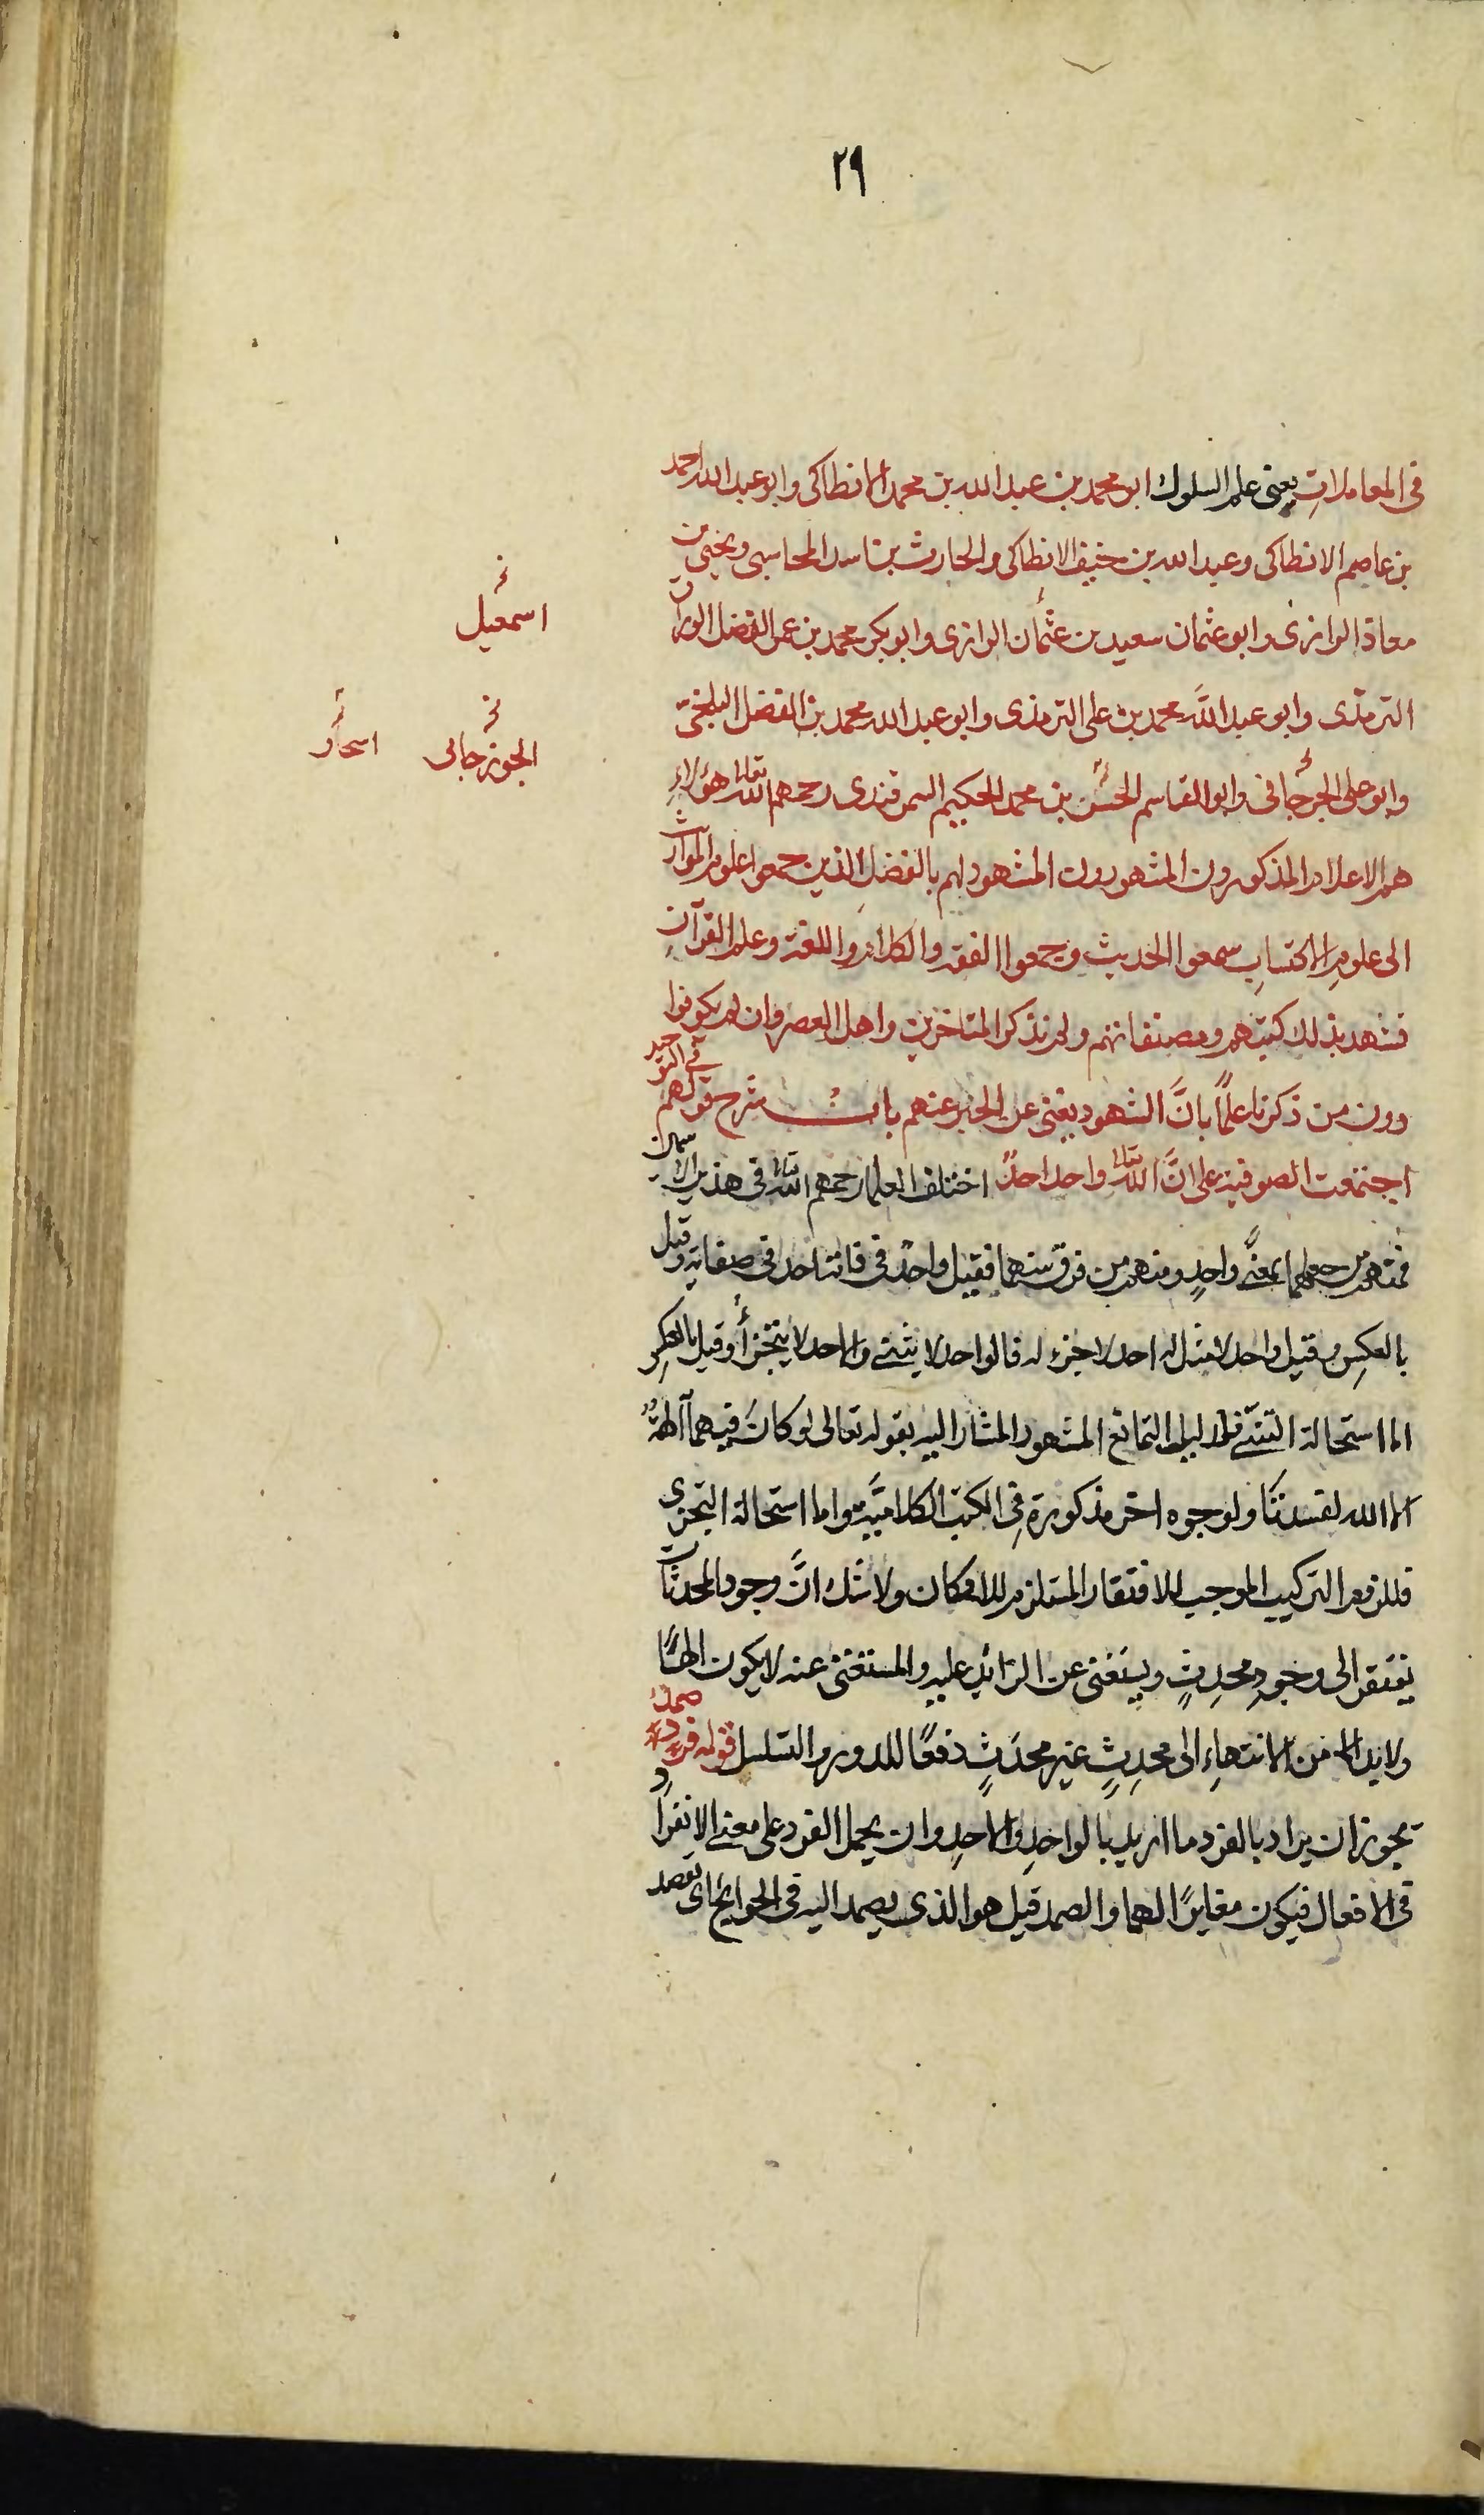 ٢٩
في المعاملاتِ يعني علم السلوك ابو محمد بن عبد الله بن محمد الانطاكى وابو عبد الله احمد
بن عاصم الانطاكى وعبد الله بن خنيف الانطاكى والحارث بن اسد المحاسبى ويحيى بن
معاذ الرازى وابو عثمان سعيد بن عثمان الرازى وابو بكر محمد بن عمر الفضل الوراق
اسمعيل
الترمذى وابو عبد اللَّه محمد بن على الترمذى وابو عبد الله محمد بن الفضل البلخىّ
الجوزجانى
اسحاق
وابو على الجرجانى وابو القاسم الحسن بن محمد الحكيم السمرقندى رحمهم اللّه تعالى هؤلاءِ
هم الاعلام المذكورون المشهورون المشهود لهم بالفضل الذين جمعوا علوم المواريث
الى علومِ الاكتسابِ سمعوا الحديث وجمعوا الفقه والكلام واللغة وعلم القرآنِ
فشهد بذلك كتبهم ومصنفاتهم ولم نذكر المتاخرين واهل العصر وان لم يكونوا
دون من ذكرنا علمًا بانَّ الشهود يغنى عن الخبر عنهم باب شرح قولهم في التوحيد
اجتمعت الصوفية على انَّ اللّه تعالى واحد احدٌ اختلف العلما رحمهم اللّه تعالى فى هذين الاسمين
فمنهم من جعلهما بمعنًى واحدٍ ومنهم من فرق بينهما فقيل واحدٌ فى ذاته احد فى صفاته وقيل
بالعكسِ وقيل واحد لا مثل له احد لا جزء له فالواحد لا يثنى والاحد لا يتجزأ وقيل بالعكسِ
اما استحالة التثنّى فلدليل التمانع المشهور المشار اليه بقوله تعالى لو كانَ فيهما آلهةٌ
الا الله لفسدتَا ولوجوه اخر مذكورة فِى الكتب الكلاميَّة واما استحالة التجزى
فللزوم التركيب الموجب للافتقار المستلزم للامكان ولا شك انَّ وجود المحدثات
يفتقر الى وجودِ محدِثٍ ويستغنى عن الزائد عليه والمستغنى عنه لا يكون الهًا
ولا بد الا من الانتهاءِ الى محدِثٍ غير محدَثٍ دفعًا للدور والتسلسل قوله فردٌ صمدٌ
يجوز ان يراد بالفرد ما اريد بالواحدِ والاحدِ وان يحمل الفرد على معنى الانفراد
فى الافعال فيكون مغايرًا لهما والصمد قيل هو الذى يصمد اليه فى الحوائج اى يقصد